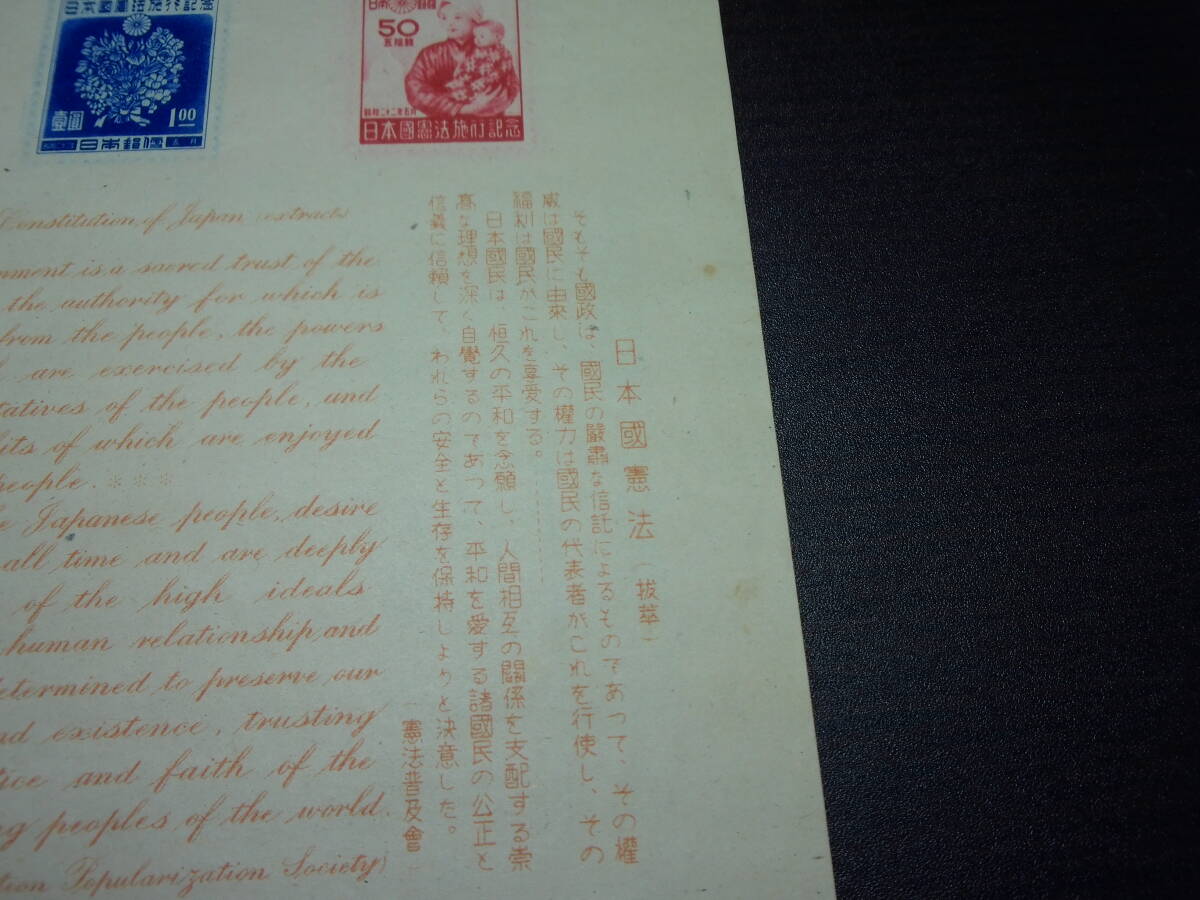 日本國憲法施行記念
壹圓
1.00
日本郵便
五月
50
五拾錢
昭和二十二年五月
日本國憲法施行記念
Constitution of Japan (extracts)
is a sacred trust of the
the authority for which is
from the people, the powers
are exercised by the
of the people, and
of which are enjoyed
people. ***
Japanese people, desire
all time and are deeply
of the high ideals
human relationship and
determined to preserve our
existence, trusting
and faith of the
peoples of the world.
Popularization Society)
日本國憲法（拔萃）
そもそも國政は、國民の嚴肅な信託によるものであつて、その權
威は國民に由來し、その權力は國民の代表者がこれを行使し、その
福利は國民がこれを享受する。………
日本國民は、恒久の平和を念願し、人間相互の關係を支配する崇
高な理想を深く自覺するのであつて、平和を愛する諸國民の公正と
信義に信賴して、われらの安全と生存を保持しようと決意した。
（憲法普及會）